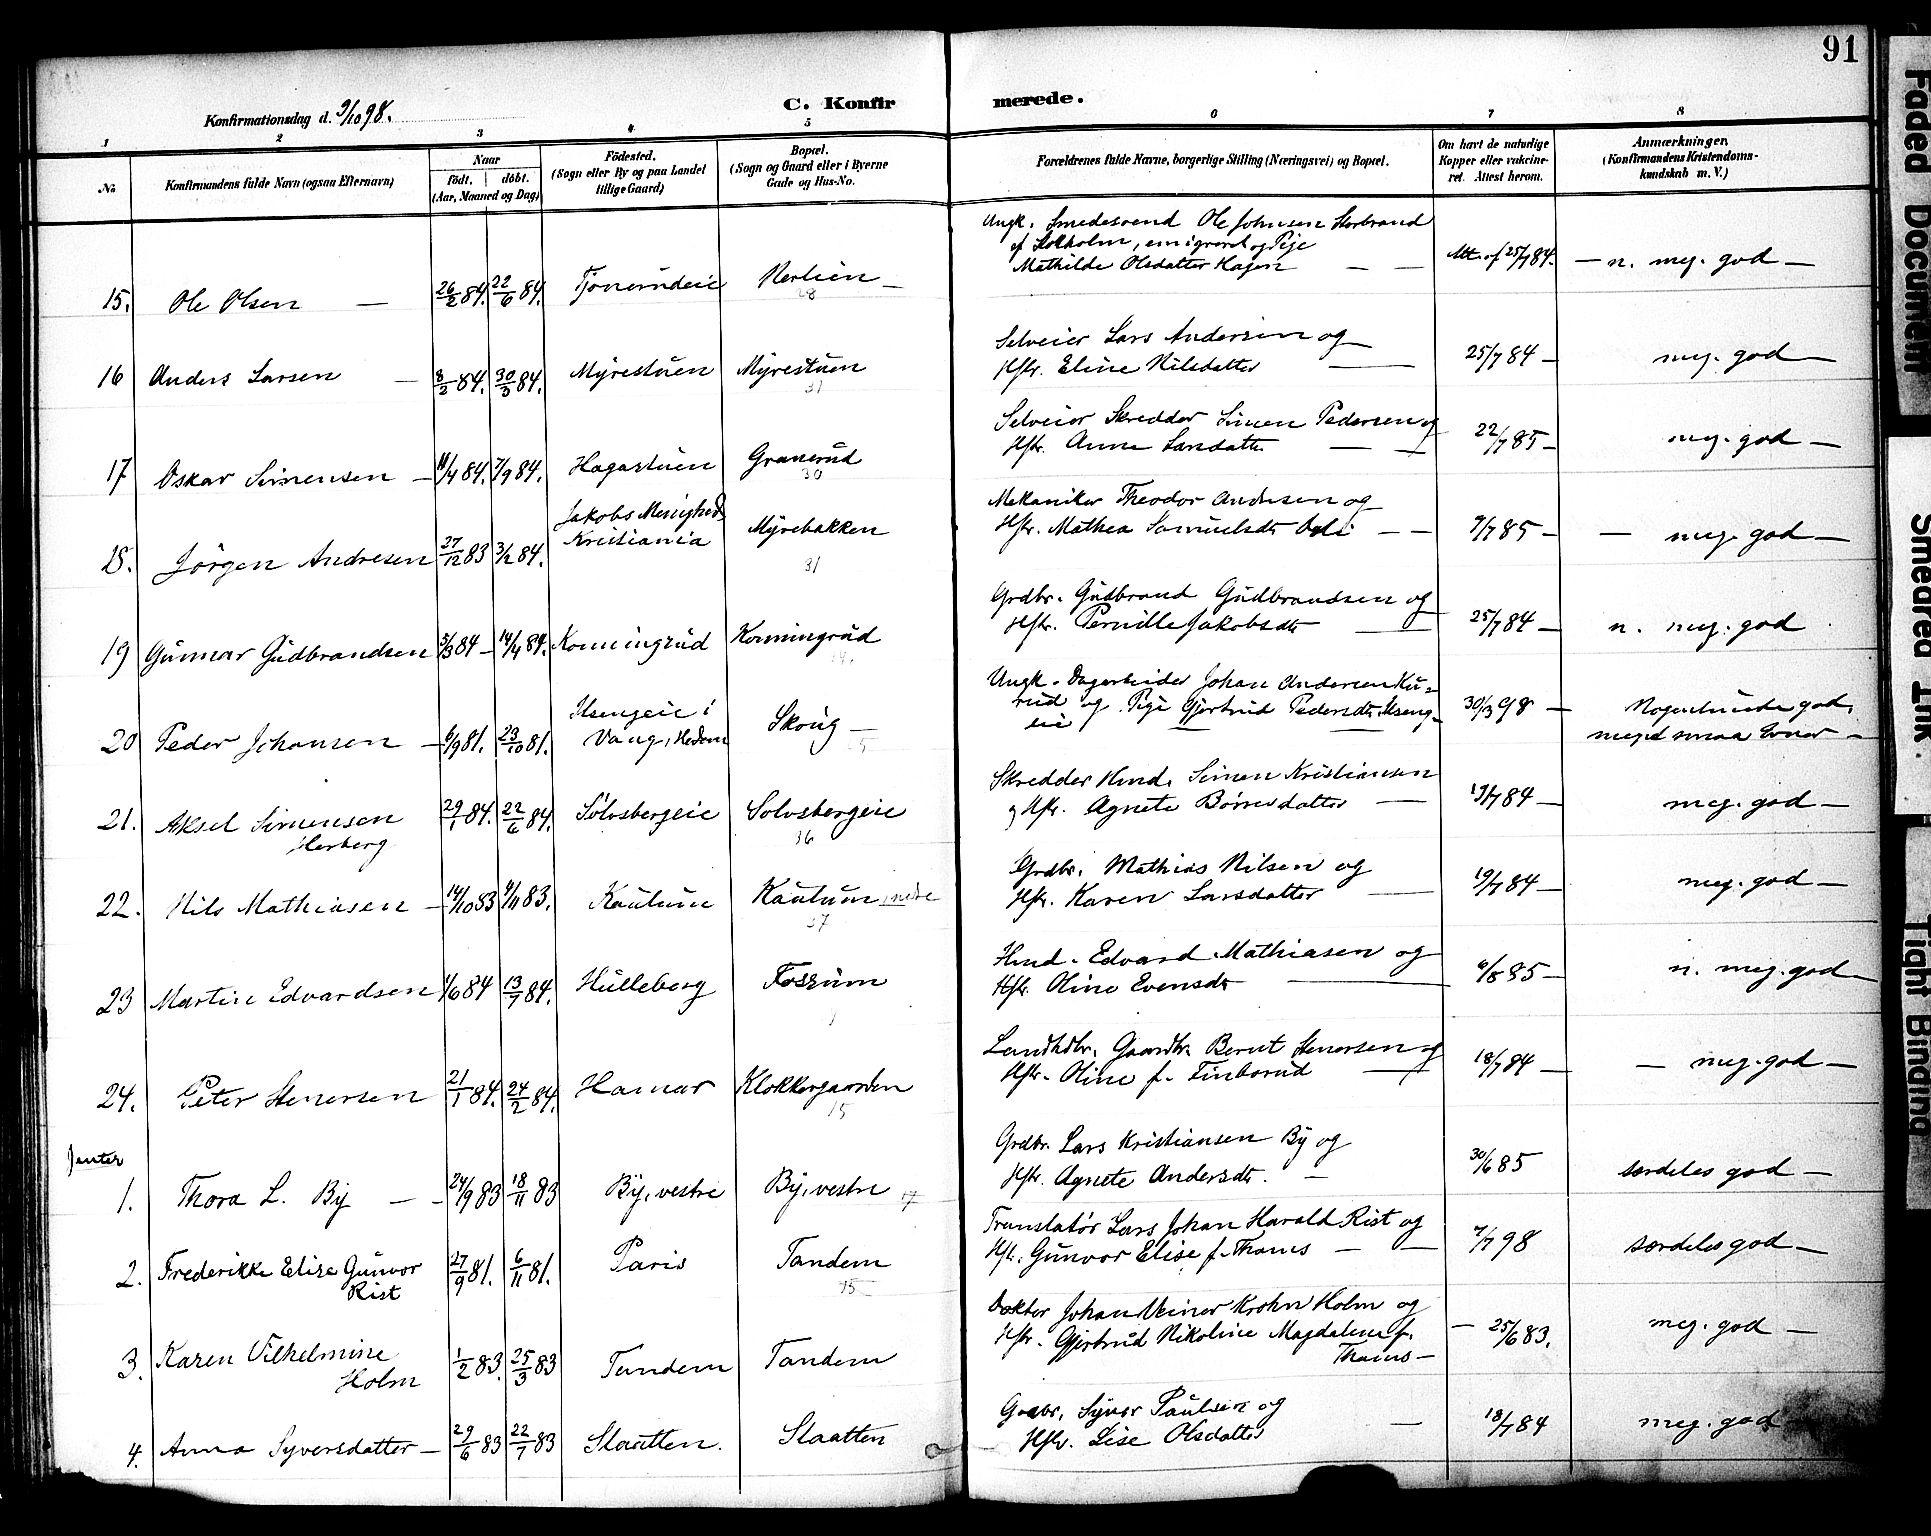 91
Konfirmationsdag d. 9/10 98.
C. Konfirmerede.
1 2 3 4 5 6 7 8
No
Konfirmandens fulde Navn (ogsaa Efternavn)
Naar
födt. döbt.
(Aar, Maaned og Dag)
Födested.
(Sogn eller By og paa Landet
tillige Gaard)
Bopæl.
(Sogn og Gaard eller i Byerne
Gade og Hus-No.
Forældrenes fulde Navne, borgerlige Stilling (Næringsvei) og Bopæl.
Om havt de naturlige
Kopper eller vakcine-
ret. Attest herom.
Anmærkninger.
(Konfirmandens Kristendoms-
kundskab m. V.)
15. Ole Olsen — 26/2 84. 22/6 84. Tjønerudeie Nerlien —
28
Ungk. Smedesvend Ole Johnsen Storbrand
af Stokholm, emigreret og Pige
Mathilde Olsdatter Hagen — —
Att. af 25/7 84. — n. meg. god —
16 Anders Larsen — 8/2 84. 30/3 84. Myrestuen Myrestuen
31
Selveier Lars Andersen og
Hstr. Eline Nilsdatter —
25/7 84 — meg. god —
17 Oskar Simensen — 11/4 84. 7/9 84. Hagastuen Granerud
30
Selveier Skredder Simen Pedersen og
Hstr. Anne Larsdatter — —
22/7 85 — meg. god —
18. Jörgen Andresen 27/12 83 3/2 84. Jakobs Menighed
Kristiania
Myrebakken
31
Mekaniker Theodor Andresen og
Hstr. Mathea Samuelsdtr — —
9/7 85 — — meg. god —
19 Gunnar Gudbrandsen 5/3 84 — 14/4 84. Konningrud Konningrud
Grdbr. Gudbrand Gudbrandsen og
Hstr. Pernille Jakobsdtr —
25/7 84 — n. meg. god
20 Peder Johansen — 6/9 81. 23/10 81. Ilsengeie i
Vang, Hedem
Skoug —
Ungk. Dagarbeider Johan Andersen Ku-
rud og Pige Gjertrud Pedersdtr Ilseng-
eie — —
30/3 98 — Nogenlunde god,
meget smaa Evner —
21. Aksel Simensen
Herberg
29/1 84. 22/6 84. Sölvsbergeie Solvsbergeie
36
Skredder Hmd. Simen Kristiansen
og Hstr. Agnete Börresdatter —
19/7 84 — meg. god —
22. Nils Mathiasen — 14/10 83 4/11 83. Kaulum Kaulum, nedre
37
Grdbr. Mathias Nilsen og
Hstr. Karen Larsdatter —
19/7 84 — meg. god —
23 Martin Edvardsen 1/6 84 13/7 84. Hulleberg Fossum
Hmd. Edvard Mathiasen og
Hstr. Oline Evensdtr —
6/8 85 — n. meg. god
24. Peter Stenersen 21/1 84. 24/2 84. Hamar Klokkergaarden
15
Landhdlr. Gaardbr. Bernt Stenersen og
Hstr. Oline f. Finborud —
18/7 84 — — meg. god —
Jenter
1. Thora L. By — — 24/9 83 18/11 83 By, vestre By, vestre 17
Grdbr. Lars Kristiansen By og
Hstr. Agnete Andersdtr. —
30/6 85 særdeles god —
2. Frederikke Elise Gunvor
Rist
27/9 81. 6/11 81. Paris Tandem
15
Translatör Lars Johan Harald Rist og
Hst. Gunvor Elise f. Thams — —
7/7 98 særdeles god —
3. Karen Vilhelmine
Holm
1/2 83. 25/3 83 Tandem Tandem
Doktor Johan Weiner Krohn Holm og
Hstr. Gjertrud Nikoline Magdalene f.
Thams —
— 25/6 83. meg. god —
4. Anna Syversdatter — 29/6 83 22/7 83 Slaatten. Slaatten
Gaabr. Syver Paulsen og
Hstr. Lise Olsdatter —
18/7 84 meg. god
Faded Document
Smeared Ink.
Tight Binding